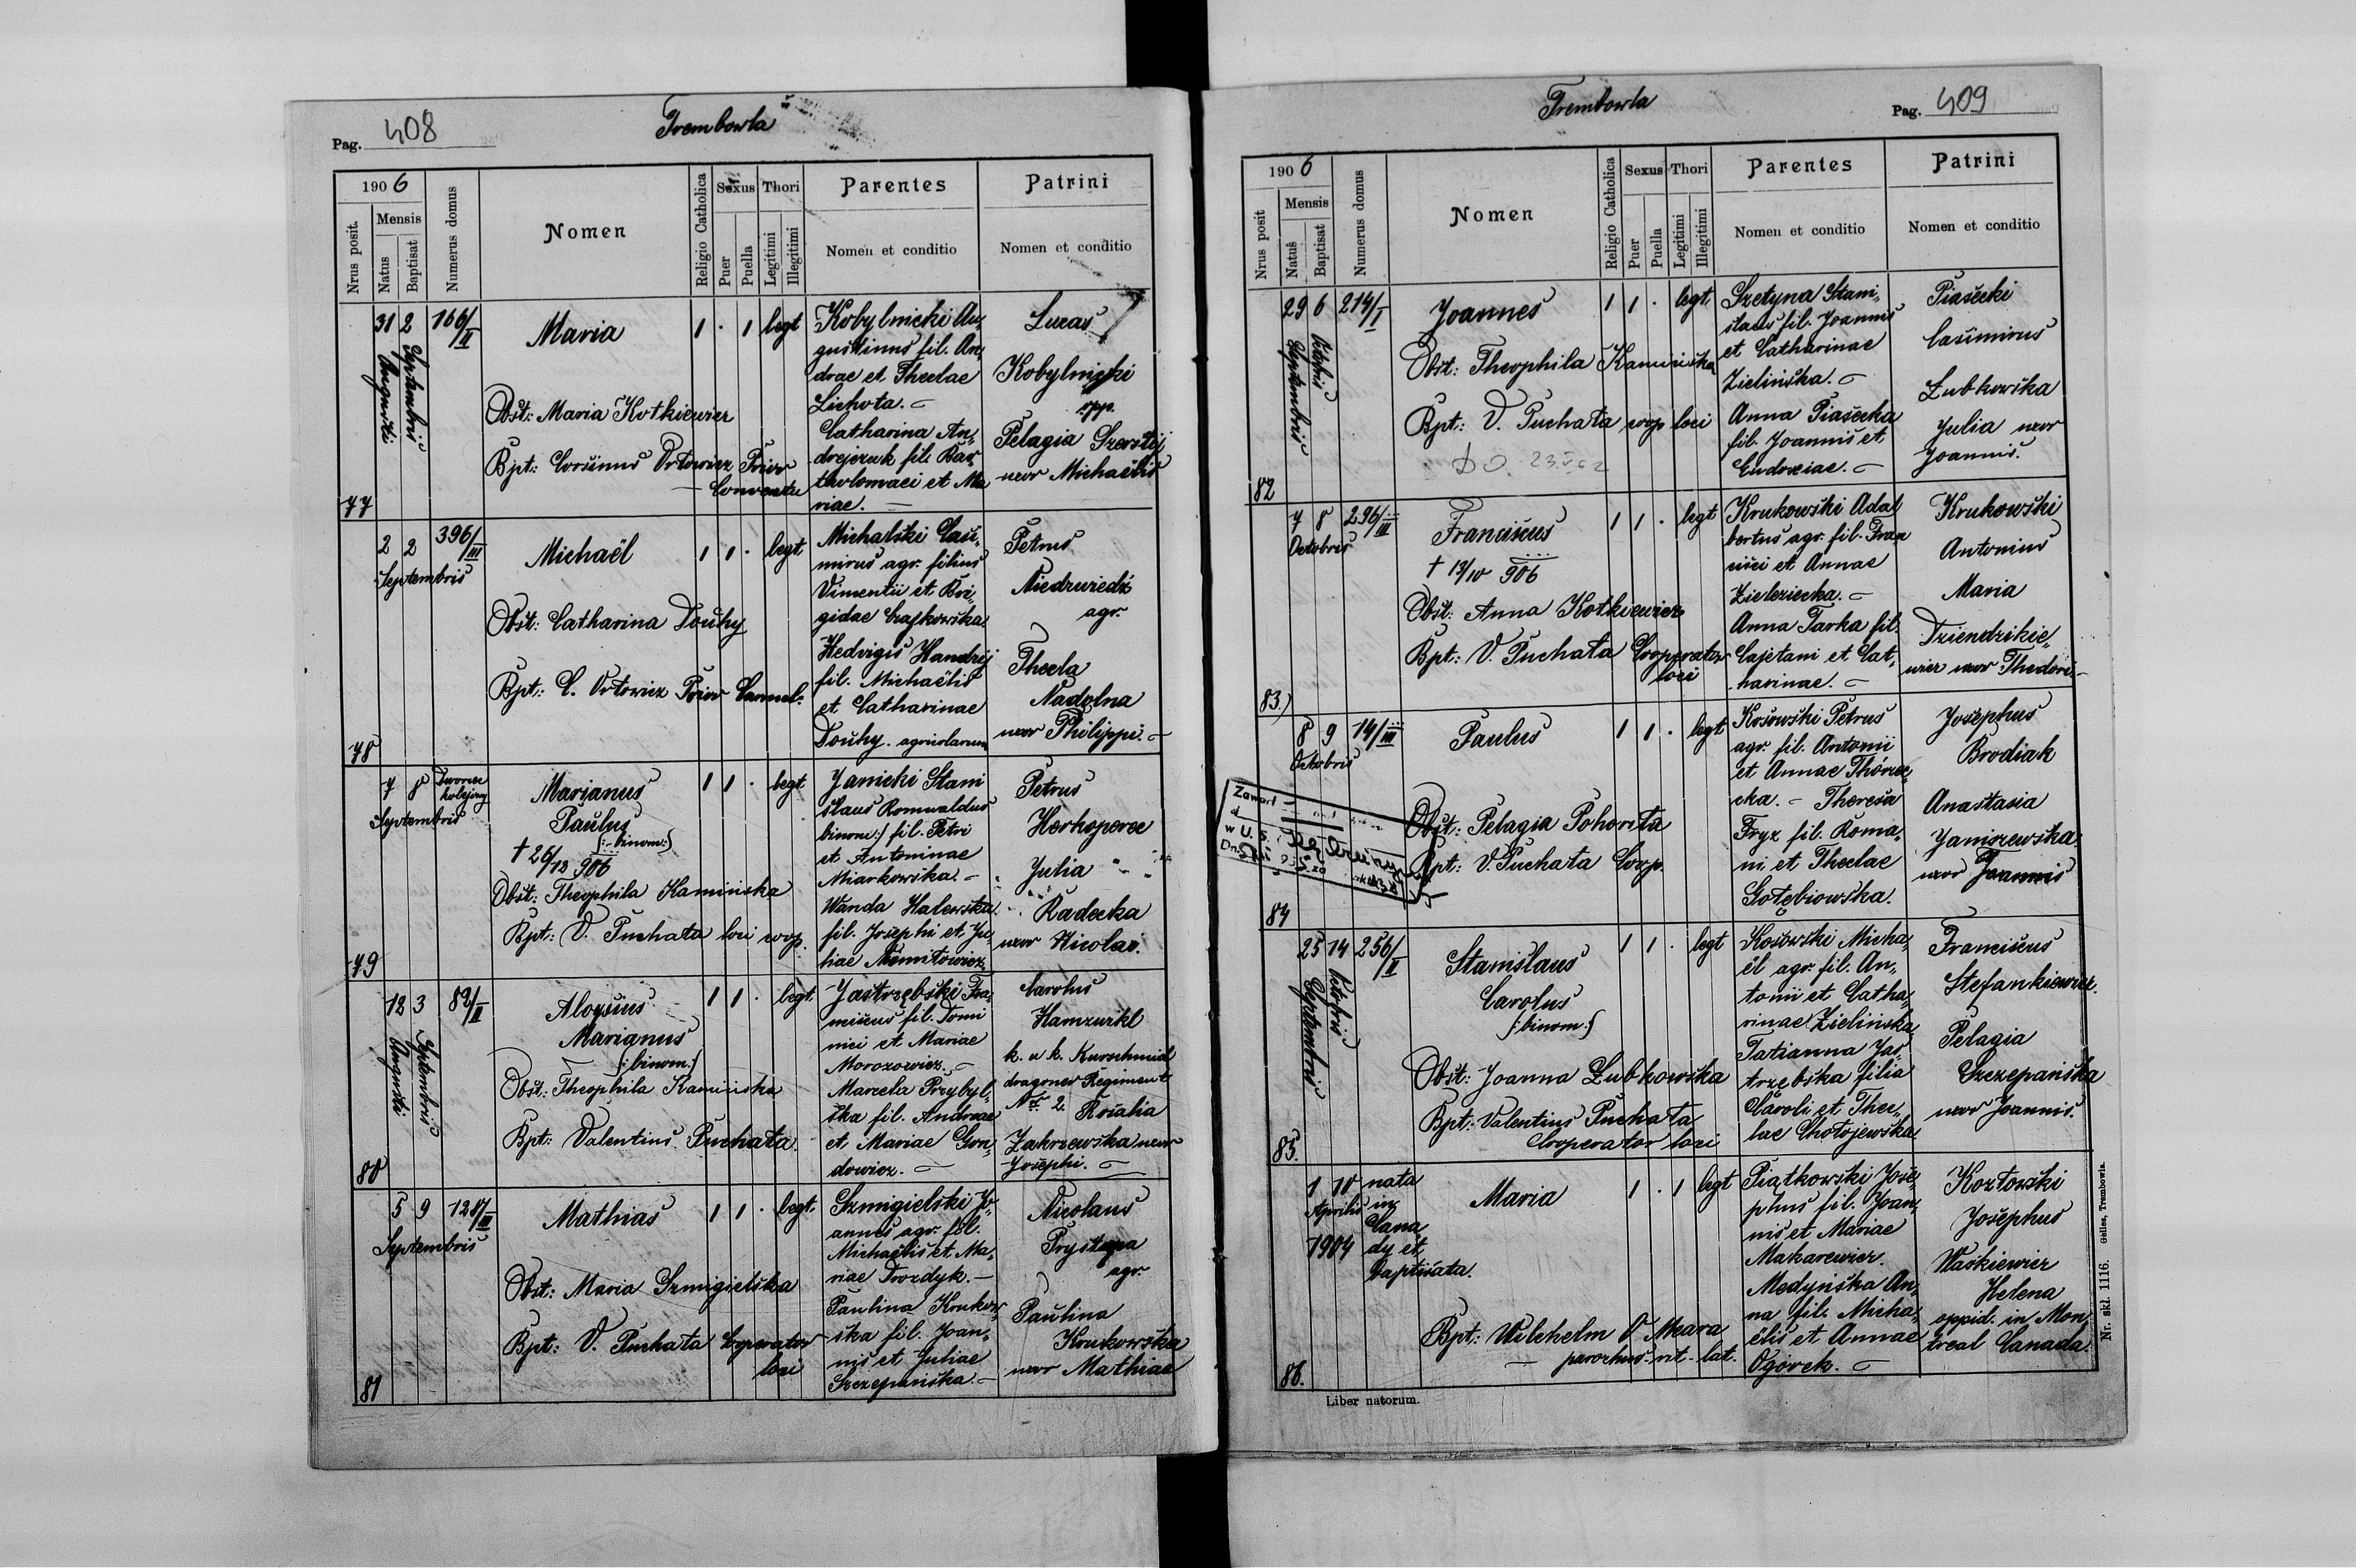 Pag. 408
Trembowla
1906
Nrus posit.
Mensis
Natus
Baptisat
Numerus domus
Nomen
Religio Catholica
Sexus
Puer
Puella
Thori
Legitimi
Illegitimi
Parentes
Nomen et conditio
Patrini
Nomen et conditio
77
31 2 166/II
Augusti
Septembris
Maria
1 . 1 legt
Obst: Maria Kotkiewicz
Bpt: Prior
Conventu
Kobylnicki Au„
gustinus fil. An„
drae et Theclae
Lichota. –
Catharina An„
drejczuk fil. Bar„
tholomaei et Ma
riae. –
Lucas
Kobylnicki
opp.
Pelagia
uxor Michaëlis
78
2 2 396/III
Septembris
Michaël
1 1 . legt
Obst: Catharina Douhy
Bpt: C. Prior Carmel.
Michalski Casi„
mirus agr. filius
Vincentii et Bri„
gidae Czajkowska
Hedvigis Handrij
fil. Michaëlis
et Catharinae
Douhy. agricolarum
Petrus
Niedzwiedź
agr.
Thecla
Nadolna
uxor Philippi. –
79
7 8 Dworzec
kolejowy
Septembris
Marianus
Paulus
(:binom:)
† 26/12 906
1 1 . legt
Obst: Theophila Kamińska
Bpt: V. Puchała loci coop.
Janicki Stani
slaus Romualdus
binom:) fil. Petri
et Antoninae
Miarkowska. –
Wanda Halewska
fil. Josephi et Ju„
liae
Petrus
Julia
Radecka
uxor Nicolai.
80
12 3 82/II
Augusti
Septembris
Aloysius
Marianus
(:binom:)
1 1 . legt.
Obst: Theophila Kamińska
Bpt: Valentins Puchała.
Jastrzębski Fra„
nciscus fil. Domi
nici et Mariae
Morozowicz. –
Marcela Przybyl„
ska fil. Andreae
et Mariae Gon„
dowicz. –
Carolus
k. u k. Kurschmid
dragoner Regiment
No 2. Rosalia
Zakrzewska uxor
Josephi. –
81
5 9 128/III
Septembris
Mathias
1 1 . legt.
Obst: Maria Szmigielska
Bpt: V. Puchała Cooperator
loci
Szmigielski Jo„
annes agr. fil.
Michaëlis et Ma„
riae Drozdyk. –
Paulina Krukow„
ska fil. Joan„
nis et Juliae
Szczepańska. –
Nicolaus
Przystupa
agr.
Paulina
Krukowska
uxor Mathiae
Pag. 409
Trembowla
1906
Nrus posit
Mensis
Natus
Baptisat
Numerus domus
Nomen
Religio Catholica
Sexus
Puer
Puella
Thori
Legitimi
Illegitimi
Parentes
Nomen et conditio
Patrini
Nomen et conditio
82
29 6 214/I
Septembris
Octobris
Joannes
1 1 . legt.
Obst: Theophila Kamińska
Bpt: V. Puchała coop loci
Szetyna Stani„
slaus fil. Joannis
et Catharinae
Zielińska. –
Anna Piasecka
fil. Joannis et
Eudoxiae. –
Piasecki
Casimirus
Zubkowska
Julia uxor
Joannis.
83.)
7 8 296/III
Octobris
Franciscus
† 13/10 906
1 1 . legt
Obst: Anna Kotkiewicz
Bpt: V. Puchała Cooperator
loci
Krukowski Adal
bertus agr. fil. Fran
cisci et Annae
Zieleziecka. –
Anna Tarka fil.
Cajetani et Cat„
harinae. –
Krukowski
Antonius
Maria
Dziendzikie„
wicz uxor Theodori –
84
8 9 14/III
Octobris
Paulus
1 1 . legt
Zawarł
Obst: Pelagia Pohoryła
Bpt: V. Puchała Coop.
Kosowski Petrus
agr. fil. Antonii
et Annae
cka. – Theresa
Fryz fil. Roma„
ni et Theclae
Gołębiowska.
Josephus
Brodiak
Anastasia
Janiszewska
uxor Joannis
85.
25 14 256/II
Septembris
Octobris
Stanislaus
Carolus
(:binom:)
1 1 . legt
Obst: Joanna Zubkowska
Bpt: Valentins Puchała
Cooperator loci
Kosowski Micha„
ël agr. fil. An„
tonii et Catha„
rinae Zielińska
Tatianna Jas„
trzębska filia
Caroli et Thec„
lae Chołojewska
Franciscus
Stefankiewicz.
Pelagia
Szczepańska
uxor Joannis.
86.
1 10 nata
Aprilis in
Cana
1904 dy et
baptisata.
Maria
1 . 1 legt
Bpt: Wilchelm O Meara
– parochus rit. lat.
Piątkowski Jose„
phus fil. Joan„
nis et Mariae
Makarewicz.
Medyńska An„
na fil. Micha„
ëlis et Annae
Ogórek. –
Kozłowski
Josephus
Waskiewicz
Helena
oppid. in Mon„
treal Canada.
Liber natorum.
Nr. skł. 1116. Gelles, Trembowla.